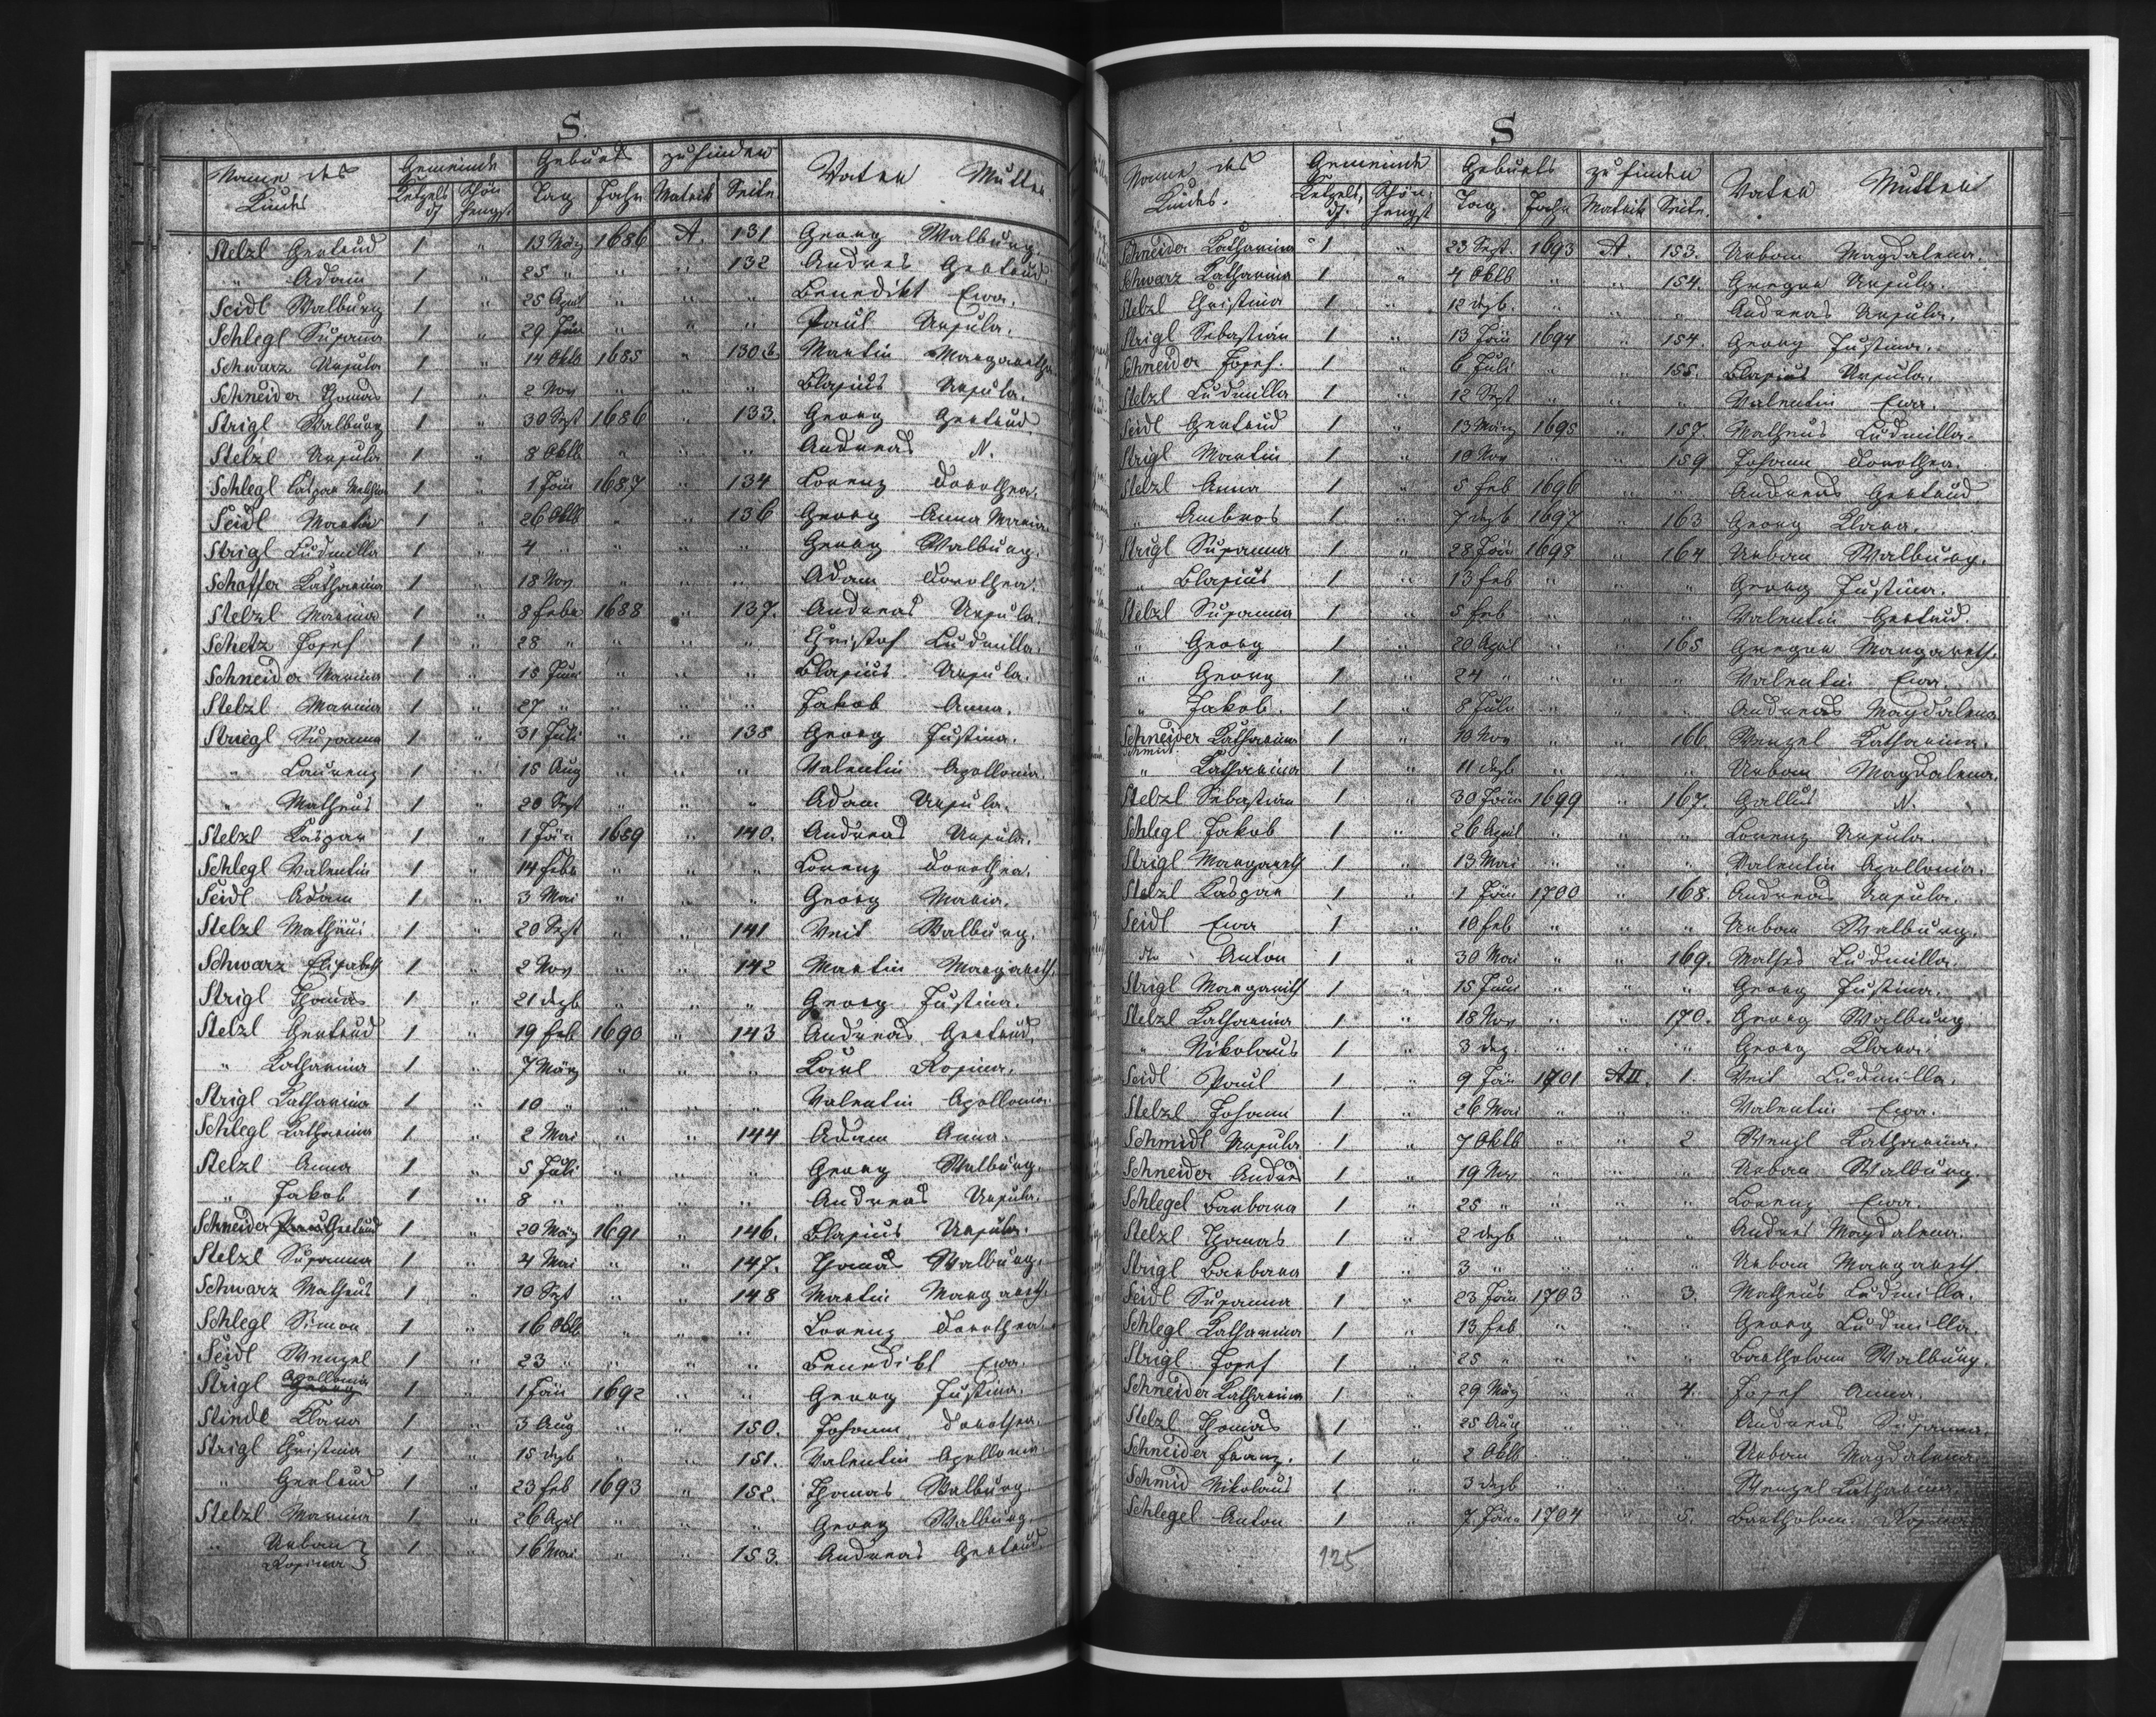 S.
Name des Kindes Gemeinde Geburts zu finden Vater Mutter
Ketzelsdf Schönhengst Tag Jahr Matrik Seite
Stelzl Gertrud 1 " 13 März 1686 A. 131 Georg Walburg.
" Adam 1 " 25 " " " 132 Andreas Gertrud.
Seidl Walburg 1 " 25 April " " " Benedikt Ewa.
Schlegl Susanna 1 " 29 " " " Paul Ursula.
Schwarz Ursula 1 " 14 Oktb 1685 " 130 b. Martin Margareth
Schneider Thomas 1 " 2 Nov " " " Blasius Ursula.
Strigl Walburg 1 " 30 Sept 1686 " 133. Georg Gertrud.
Stelzl Ursula 1 " 8 Oktb " " " Andreas N.
Schlegl Kaspar 1 " 1 Jän 1687 " 134 Lorenz Dorothea.
Seidl Martin 1 " 26 Oktb " " 136 Georg Anna Maria.
Strigl Ludmilla 1 " 4 " " " " Georg Walburg.
Schaffer Katharina 1 " 18 Nov. " " " Adam Dorothea.
Stelzl Marina 1 " 8 Febr 1688 " 137. Andreas Ursula.
Schetz Josef 1 " 28 " " " " Christof Ludmilla.
Schneider Marina 1 " 15 Juni " " " Blasius Ursula.
Stelzl Marina 1 " 27 " " " " Jakob Anna.
Striegl Susanna 1 " 31 Juli " " 138 Georg Justina.
" Laurenz 1 " 15 Aug " " " Valentin Apollonia.
" Matheus 1 " 20 Sept " " " Adam Ursula.
Stelzl Kaspar 1 " 1 Jän 1689 " 140. Andreas Ursula.
Schlegl Valentin 1 " 14 Febr " " " Lorenz Dorothea.
Seidl Adam 1 " 3 Mai " " " Georg Maria.
Stelzl Mathäus 1 " 20 Sept " " 141 Veit Walburg.
Schwarz Elisabeth 1 " 2 Nov " " 142 Martin Margareth.
Strigl Thomas 1 " 21 Dezb " " " Georg Justina.
Stelzl Gertrud 1 " 19 Feb 1690 " 143 Andreas Gertrud.
" Katharina 1 " 7 März " " " Karl Rosina.
Strigl Katharina 1 " 10 " " " " Valentin Apollonia.
Schlegl Katharina 1 " 2 Mai " " 144 Adam Anna.
Stelzl Anna 1 " 5 Juli " " " Georg Walburg.
" Jakob 1 " 8 " " " " Andreas Ursula.
Schneider Gertrud 1 " 20 März 1691 " 146. Blasius Ursula.
Stelzl Susanna 1 " 4 Mai " " 147. Thomas Walburg.
Schwarz Matheus 1 " 10 Sept " " 148 Martin Margareth.
Schlegl Simon 1 " 16 Oktb " " " Lorenz Dorothea.
Seidl Wenzel 1 " 23 " " " " Benedikt Ewa.
Strigl Georg Apollonia 1 " 1 Jän 1692 " " Georg Justina.
Stindl Klara 1 " 3 Aug " " 150. Johann Dorothea.
Strigl Christina 1 " 15 Dezb " " 151. Valentin Apollonia.
" Gertrud 1 " 23 Feb 1693 " 152. Thomas Walburg.
Stelzl Marina 1 " 26 April " " " Georg Walburg.
" Urban Rosina } 1 " 16 Mai " " 153. Andreas Gertrud.
S
Name des Kindes. Gemeinde Geburts zu finden Vater Mutter
Ketzelsdf. Schönhengst Tag. Jahr Matrik Seite.
Schneider Katharina 1 " 23 Sept. 1693 A. 153. Urban Magdalena.
Schwarz Katharina 1 " 4 Oktb " " 154. Gregor Ursula.
Stelzl Christina 1 " 12 Dezb. " " " Andreas Ursula.
Strigl Sebastian 1 " 13 Jän 1694 " 154. Georg Justina.
Schneider Josef. 1 " 6 Juli " " 155. Blasius Ursula.
Stelzl Ludmilla 1 " 12 Sept " " " Valentin Ewa.
Seidl Gertrud 1 " 13 März 1695 " 157. Matheus Ludmilla.
Strigl Martin 1 " 10 Nov " " 159 Johann Dorothea.
Stelzl Anna 1 " 5 Feb 1696 " " Andreas Gertrud
" Ambros 1 " 7 Dezb 1697 " 163 Georg Klara.
Strigl Susanna 1 " 28 Jän 1698 " 164 Urban Walburg.
" Blasius 1 " 13 Feb " " " Georg Justina.
Stelzl Susanna 1 " 5 Feb " " " Valentin Gertrud.
" Georg 1 " 20 April " " 165 Gregor Margareth.
" Georg 1 " 24 " " " " Valentin Ewa.
" Jakob. 1 " 8 Julu " " " Andreas Magdalena
Schneider Schmid. Katharina 1 " 30 Nov " " 166 Wenzel Katharina.
" Katharina 1 " 11 Dezb " " " Urban Magdalena.
Stelzl Sebastian 1 " 30 Jän 1699 " 167. Gallus N.
Schlegl Jakob 1 " 26 April " " " Lorenz Ursula.
Strigl Margareth 1 " 13 Mai " " " Valentin Apollonia.
Stelzl Kaspar 1 " 1 Jän 1700 " 168. Andreas Ursula.
Seidl Ewa 1 " 10 Feb " " " Urban Walburg.
dto Anton 1 " 30 Mai " " 169. Mathes Ludmilla.
Strigl Margareth 1 " 15 Juni " " " Georg Justina.
Stelzl Katharina 1 " 18 Nov " " 170. Georg Walburg
" Nikolaus 1 " 3 Dez. " " " Georg Klara.
Seidl Paul 1 " 9 Jän 1701 A II. 1. Veit Ludmilla.
Stelzl Johann 1 " 26 Mai " " " Valentin Ewa.
Schmidl Ursula 1 " 7 Oktb " " 2 Wenzl Katharina.
Schneider Andre 1 " 19 Nov " " " Urban Walburg.
Schlegel Barbara 1 " 25 " " " " Lorenz Ewa.
Stelzl Thomas 1 " 2 Dezb " " " Andreas Magdalena.
Strigl Barbara 1 " 3 " " " " Urban Margareth.
Seidl Susanna 1 " 23 Jän 1703 " 3. Matheus Ludmilla.
Schlegl Katharina 1 " 13 Feb " " " Georg Ludmilla.
Strigl Josef 1 " 25 " " " " Bartholom Walburg.
Schneider Katharina 1 " 29 März " " 4. Josef Anna.
Stelzl Thomas 1 " 25 Aug " " " Andreas Susanna.
Schneider Franz. 1 " 2 Oktb " " " Urban Magdalena.
Schmid Nikolaus 1 " 3 Dezb " " " Wenzel Katharina.
Schlegel Anton 1 " 7 Jän 1704 " 5. Bartholom. Rosina
125